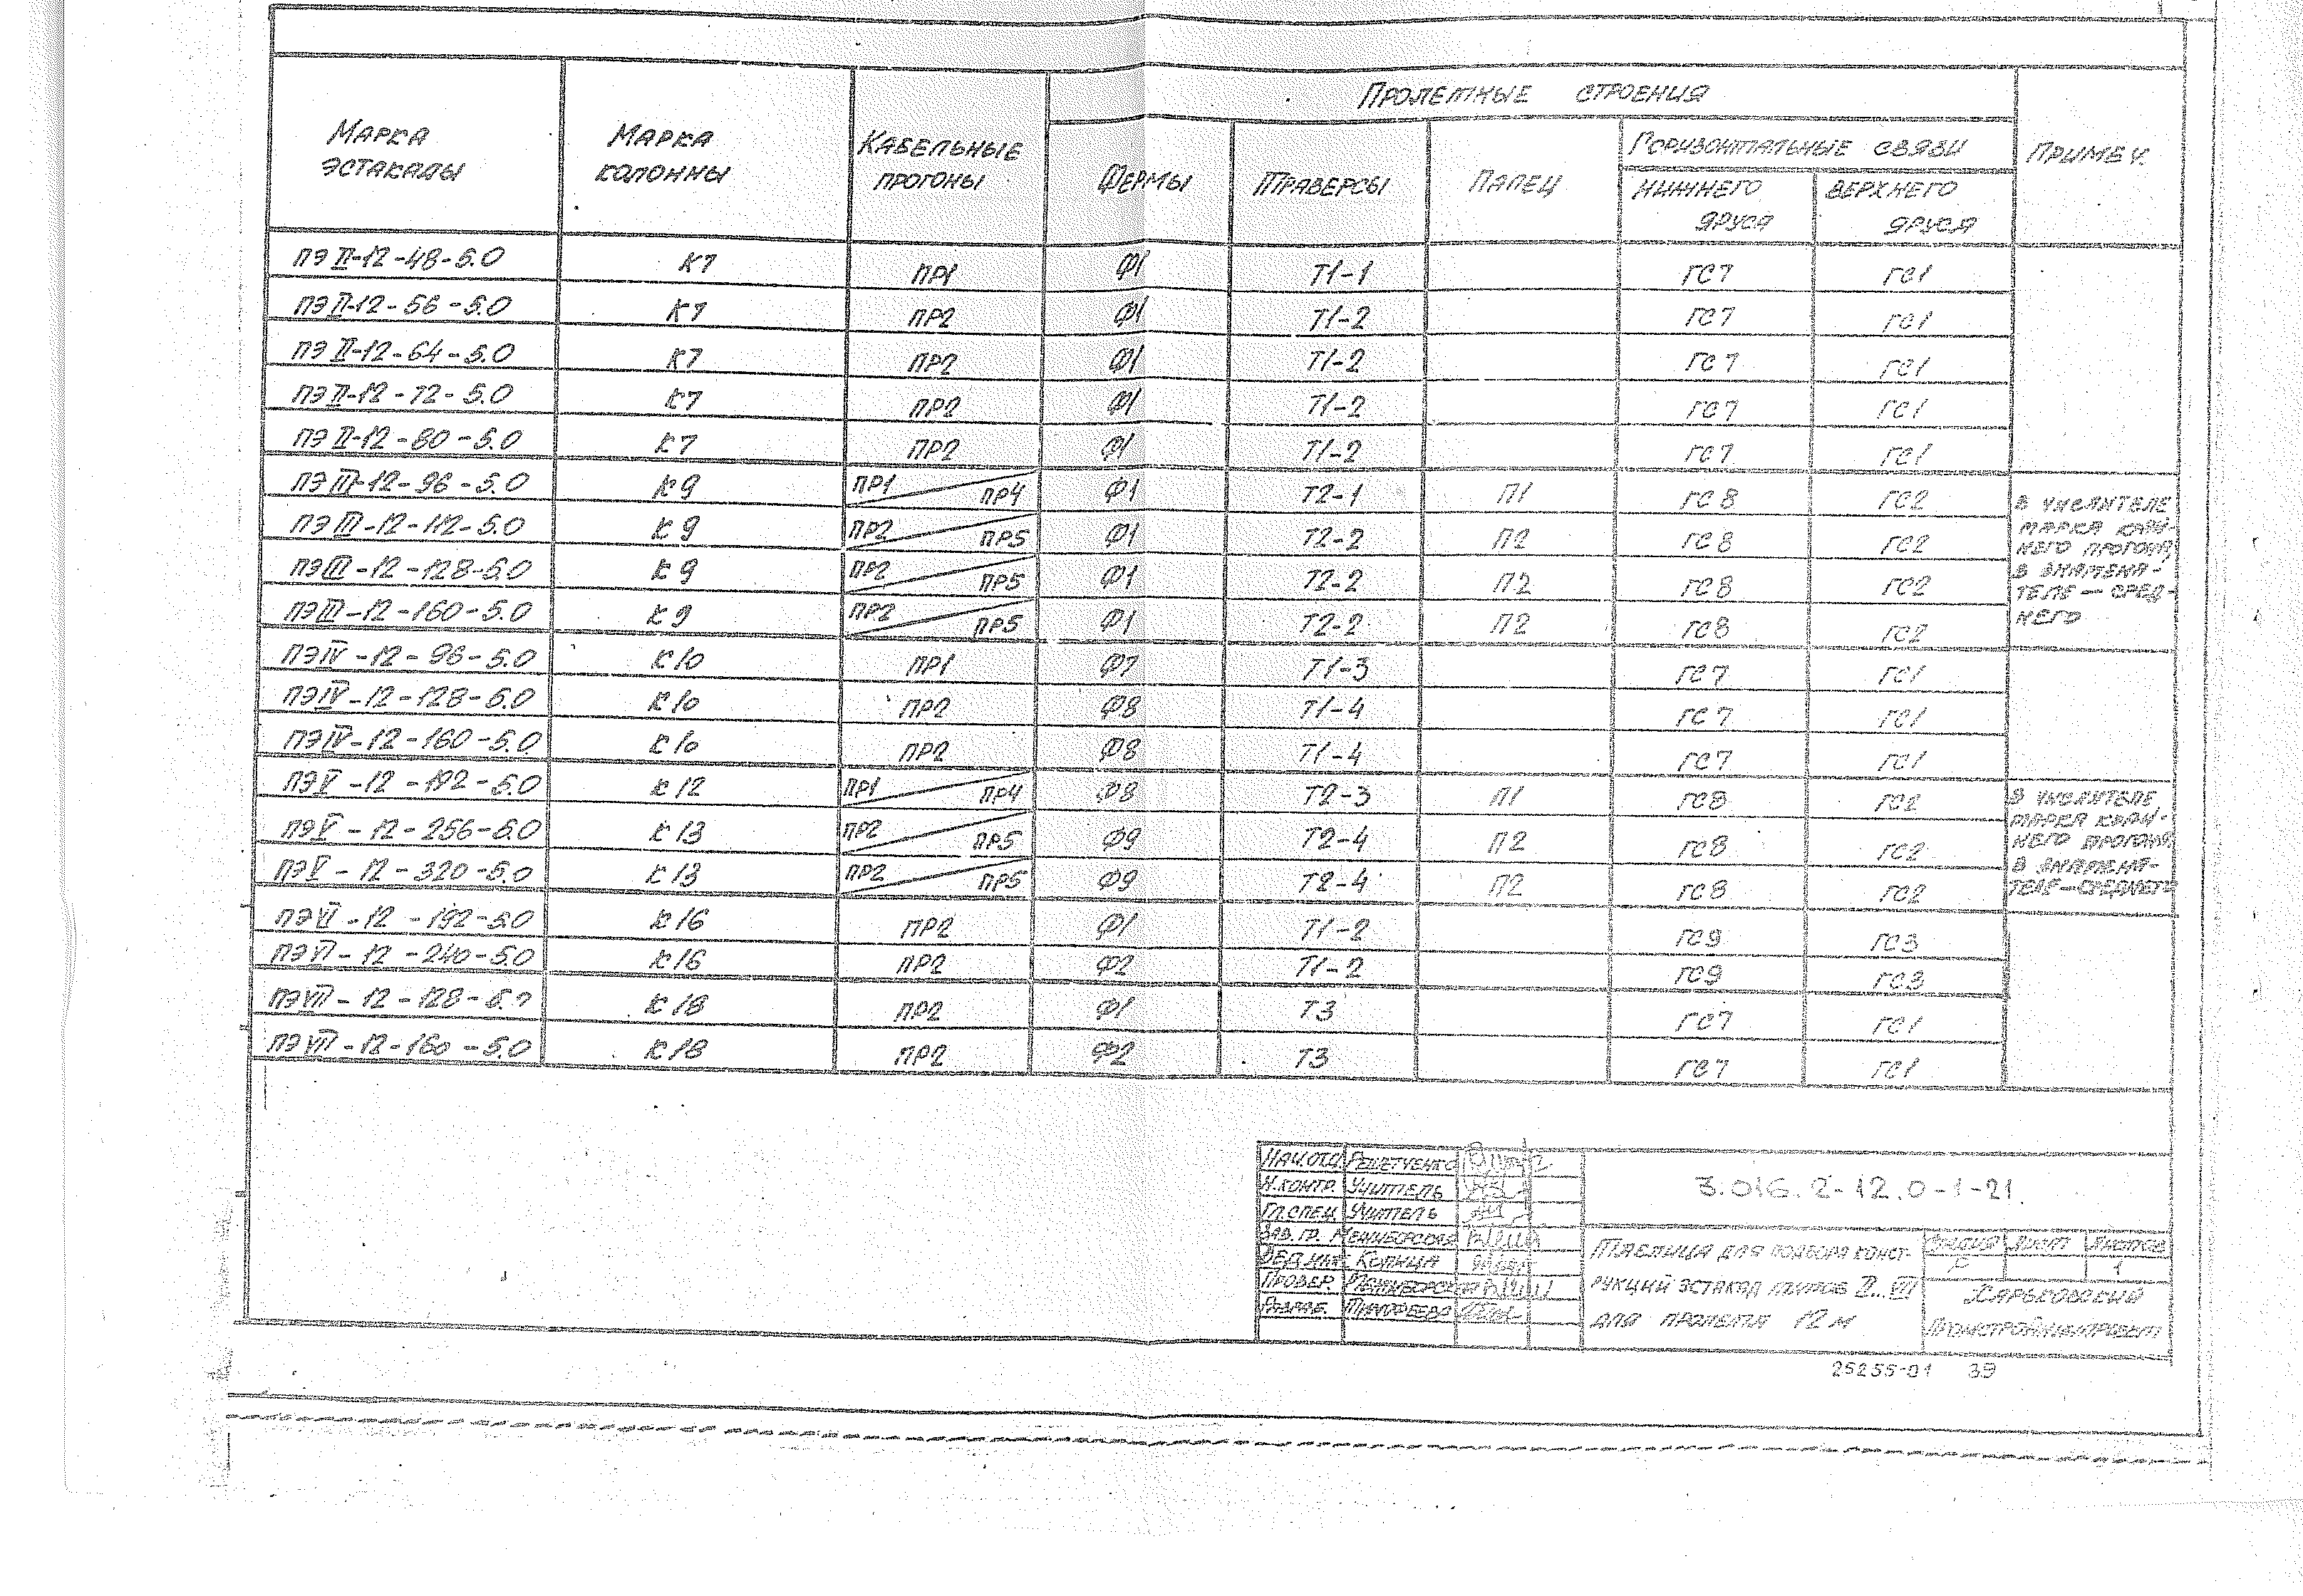 Пролетные строения
Марка эстакады
Марка колонны
Кабельные прогоны
Фермы
Траверсы
Палец
Горизонтальные связи
нижнего яруса
верхнего яруса
Примеч.
ПЭII-12-48-5.0 К7 ПР1 Ф1 Т1-1 ГС7 ГС1
ПЭII-12-56-5.0 К7 ПР2 Ф1 Т1-2 ГС7 ГС1
ПЭII-12-64-5.0 К7 ПР2 Ф1 Т1-2 ГС7 ГС1
ПЭII-12-72-5.0 К7 ПР2 Ф1 Т1-2 ГС7 ГС1
ПЭII-12-80-5.0 К7 ПР2 Ф1 Т1-2 ГС7 ГС1
ПЭIII-12-96-5.0 К9 ПР1/ПР4 Ф1 Т2-1 П1 ГС8 ГС2
ПЭIII-12-112-5.0 К9 ПР2/ПР5 Ф1 Т2-2 П2 ГС8 ГС2
ПЭIII-12-128-5.0 К9 ПР2/ПР5 Ф1 Т2-2 П2 ГС8 ГС2
ПЭIII-12-160-5.0 К9 ПР2/ПР5 Ф1 Т2-2 П2 ГС8 ГС2
В числителе
марка край-
него прогона,
в знамена-
теле — сред-
него
ПЭIV-12-96-5.0 К10 ПР1 Ф7 Т1-3 ГС7 ГС1
ПЭIV-12-128-5.0 К10 ПР2 Ф8 Т1-4 ГС7 ГС1
ПЭIV-12-160-5.0 К10 ПР2 Ф8 Т1-4 ГС7 ГС1
ПЭV-12-192-5.0 К12 ПР1/ПР4 Ф8 Т2-3 П1 ГС8 ГС2
ПЭV-12-256-5.0 К13 ПР2/ПР5 Ф9 Т2-4 П2 ГС8 ГС2
ПЭV-12-320-5.0 К13 ПР2/ПР5 Ф9 Т2-4 П2 ГС8 ГС2
В числителе,
марка край-
него прогона,
в знамена-
теле — среднего
ПЭVI-12-192-5.0 К16 ПР2 Ф1 Т1-2 ГС9 ГС3
ПЭVI-12-240-5.0 К16 ПР2 Ф2 Т1-2 ГС9 ГС3
ПЭVII-12-128-5.0 К18 ПР2 Ф1 Т3 ГС7 ГС1
ПЭVII-12-160-5.0 К18 ПР2 Ф2 Т3 ГС7 ГС1
Нач.отд. Решетченко
Н.контр. Учитель
Гл.спец. Учитель
Зав. гр.
Вед.инж.
Провер.
Разраб. Тимофеева
3.016.2-12.0-1-21.
Таблица для подбора конст-
рукций эстакад типов II...VII
для пролета 12 м
Стадия Лист Листов
Р 1
Харьковский
Промстройниипроект
25255-01 39